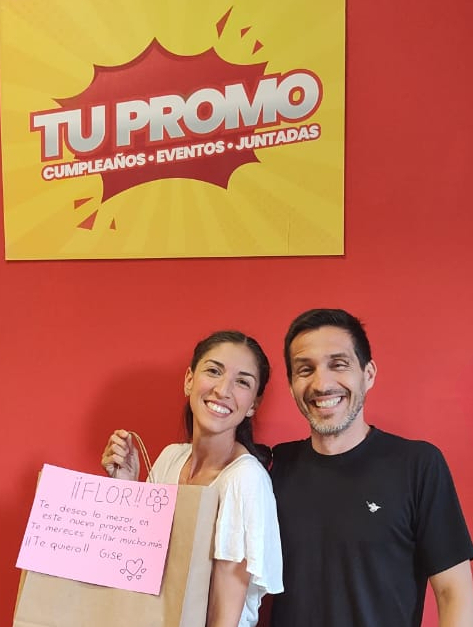 TU PROMO
CUMPLEAÑOS • EVENTOS • JUNTADAS
¡¡FLOR!!
Te deseo lo mejor en
este nuevo proyecto
Te mereces brillar mucho más
¡¡Te quiero!! Gise